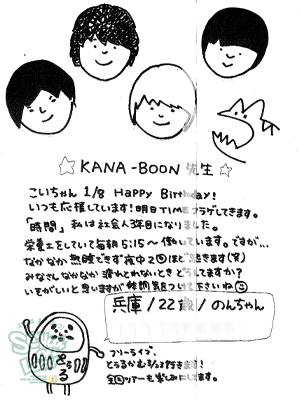 ☆ KANA-BOON 先生 ☆
こいちゃん 1/8 Happy Birthday!
いつも応援しています!明日TIMEフラゲしてきます。
「時間」私は社会人3年目になりました。
栄養士をしていて毎朝5:15〜働いています。ですが…
なかなか熟睡できず夜中2回ほど起きます(笑)
みなさんなかなか疲れとれないときどうしてますか?
いそがしいと思いますが体調気をつけて下さいね
兵庫/22歳/のんちゃん
とぅるる
フリーライブ、
とぅるかむ2/23行きます!
全国ツアーも楽しみにしてます。